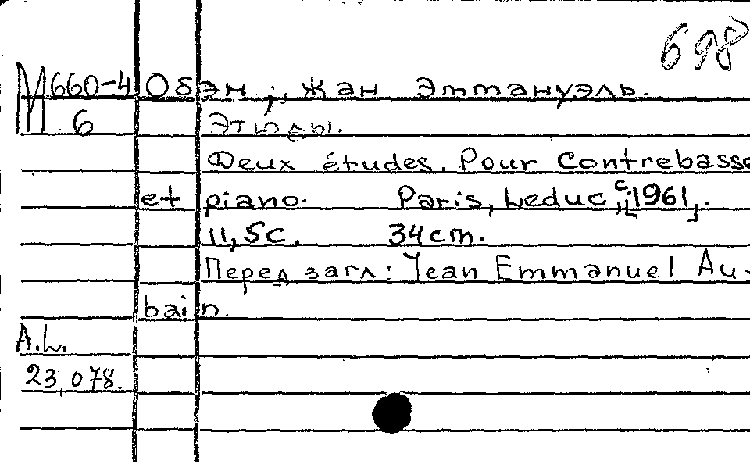 698
М660-4 Обэн, Жан Эммануэль.
6 Этюды.
Deux études. Pour contrebasse
et piano. Paris, Leduc, c[1961].
11,5с. 34cm.
Перед загл: Jean Emmanuel Au-
bain.
A.L.
23,078.